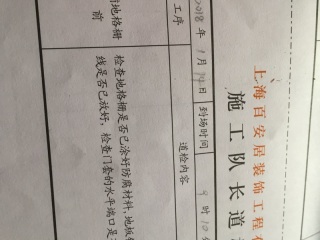 上海百安居装饰工程
施工队长道
2018年1月14日 到场时间 9时10分
工序 巡检内容
地格栅
前
检查地格栅是否已涂好防腐材料,地板
线是否已放好，检查门套的水平端口是